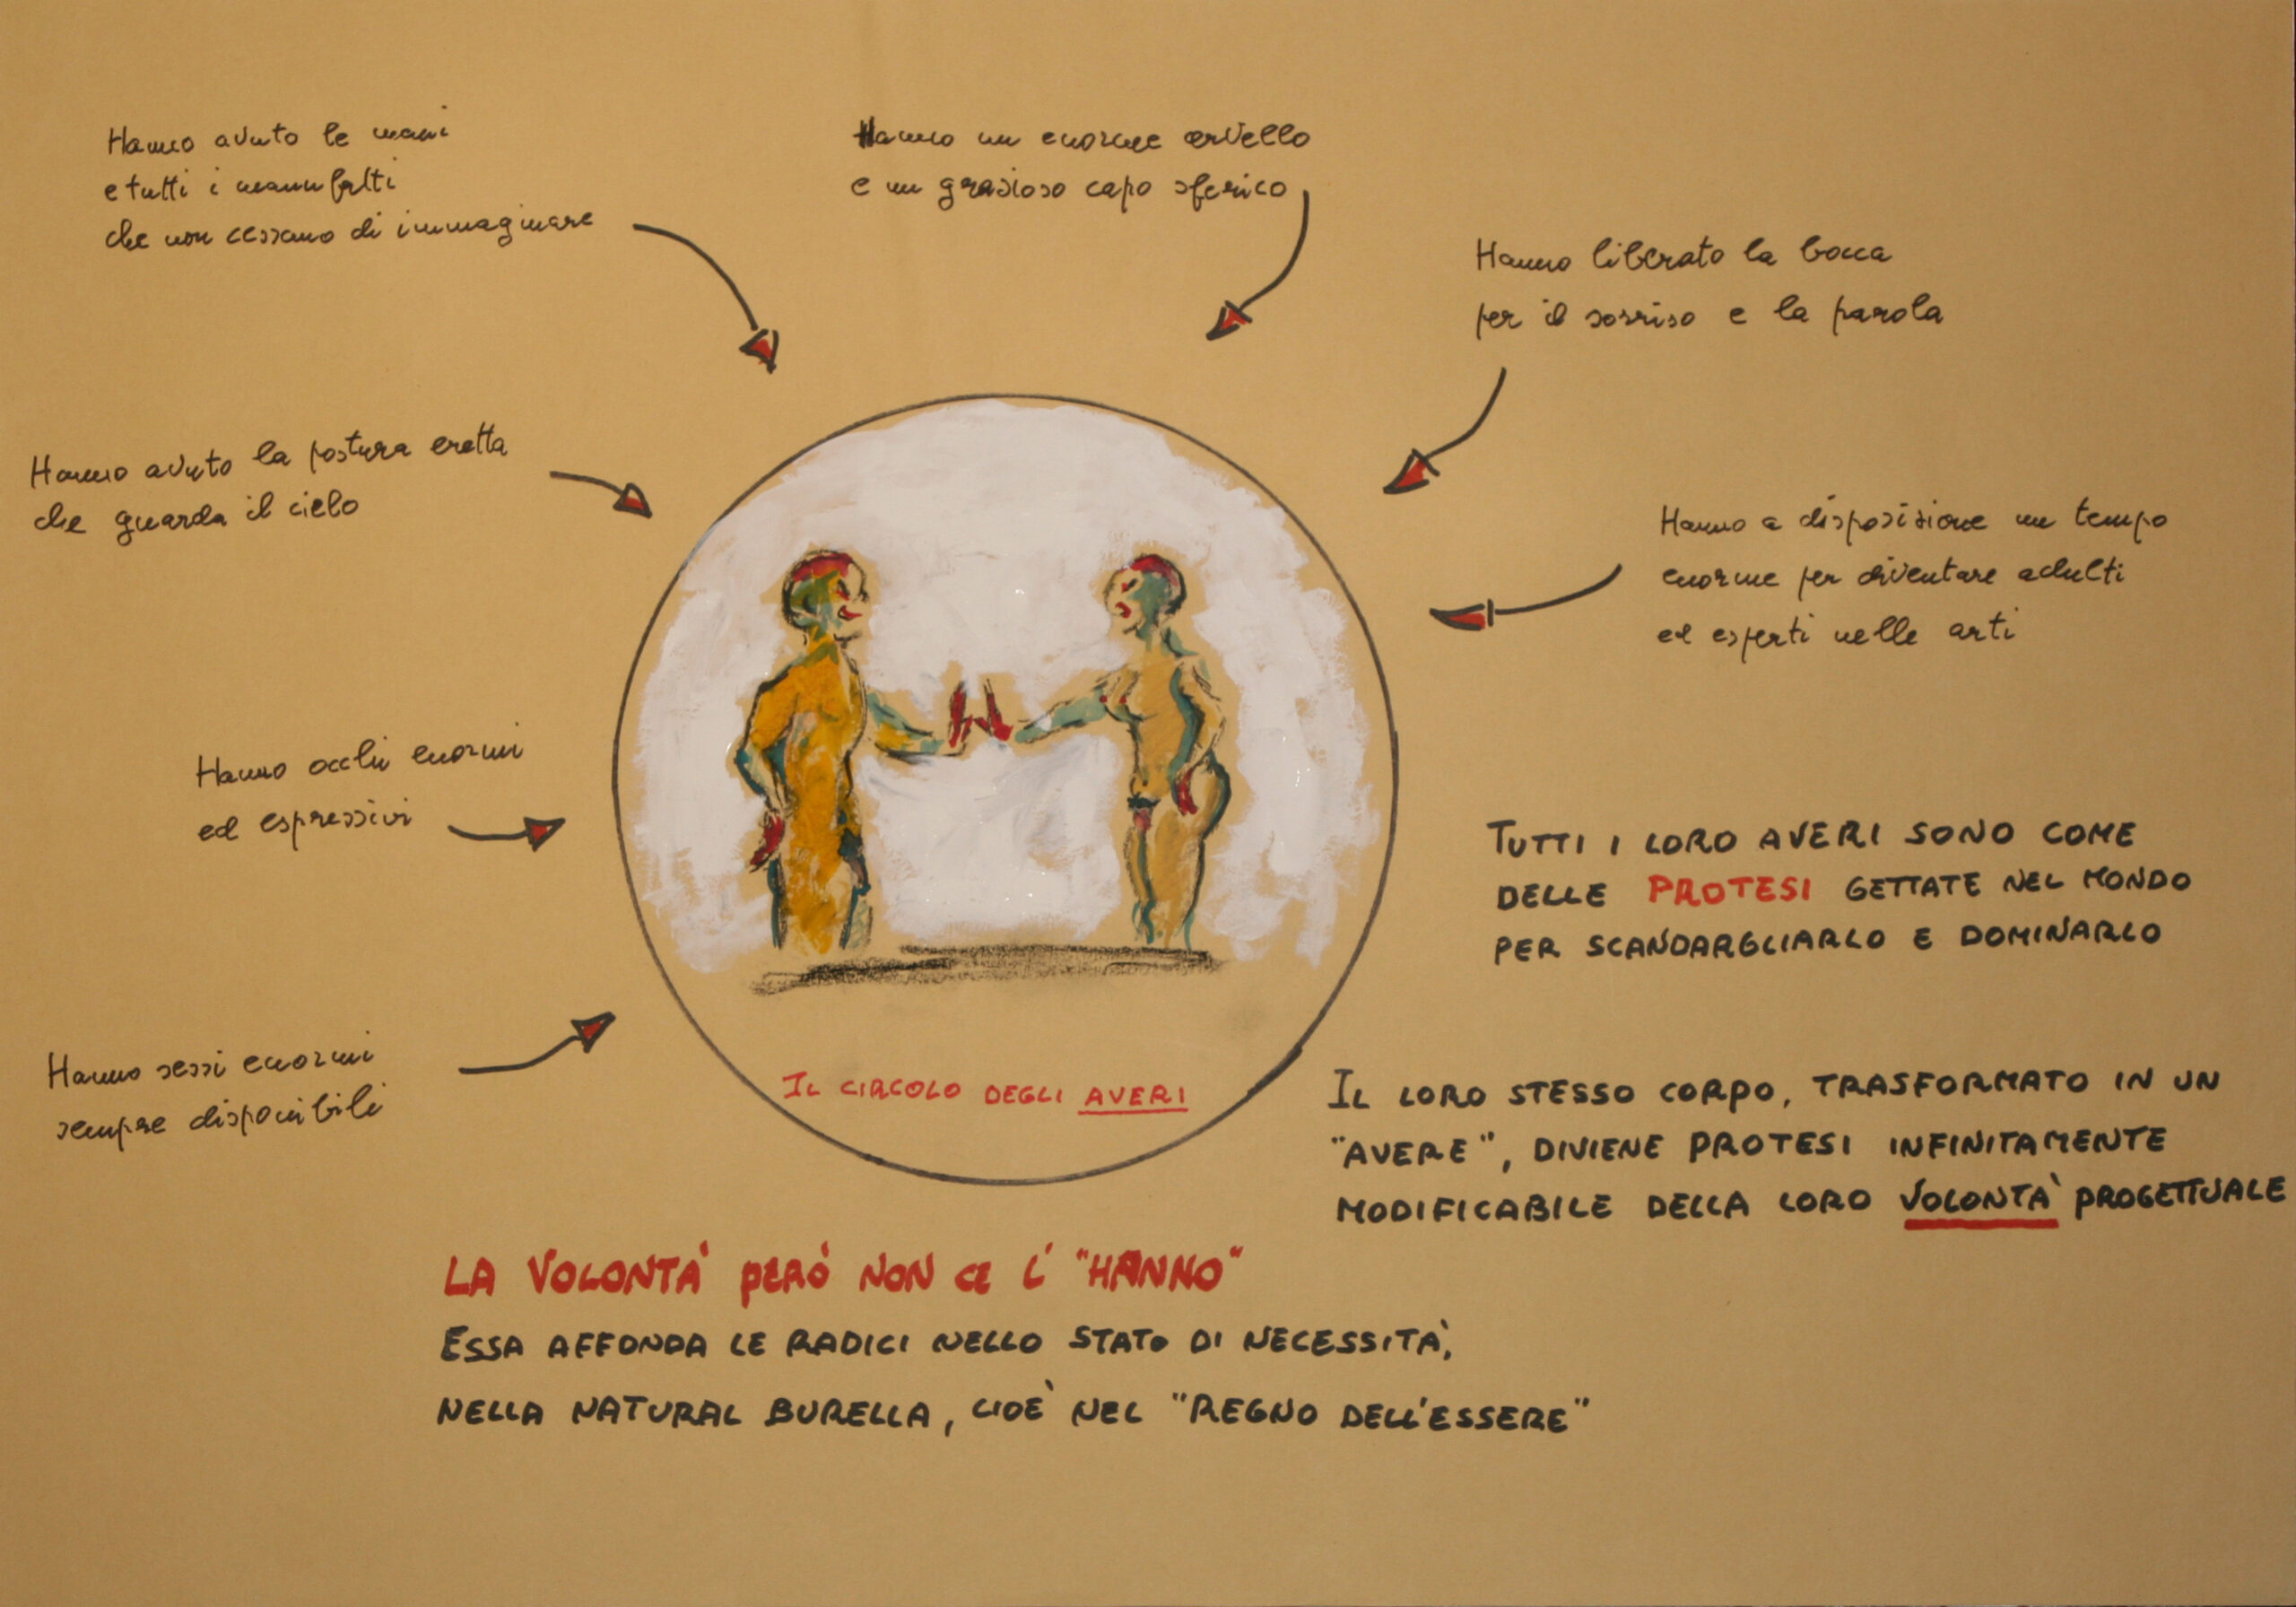 Hanno avuto le mani
e tutti i manufatti
che non cessano di immaginare
Hanno un enorme cervello
e un grazioso capo sferico
Hanno liberato la bocca
per il sorriso e la parola
Hanno avuto la postura eretta
che guarda il cielo
Hanno a disposizione un tempo
enorme per diventare adulti
ed esperti nelle arti
Hanno occhi enormi
ed espressivi
Hanno sessi enormi
sempre disponibili
IL CIRCOLO DEGLI AVERI
TUTTI I LORO AVERI SONO COME
DELLE PROTESI GETTATE NEL MONDO
PER SCANDARGLIARLO E DOMINARLO
IL LORO STESSO CORPO, TRASFORMATO IN UN
"AVERE", DIVIENE PROTESI INFINITAMENTE
MODIFICABILE DELLA LORO VOLONTA' PROGETTUALE
LA VOLONTA' PERÒ NON CE L' "HANNO"
ESSA AFFONDA LE RADICI NELLO STATO DI NECESSITA',
NELLA NATURAL BURELLA, CIOE' NEL "REGNO DELL'ESSERE"